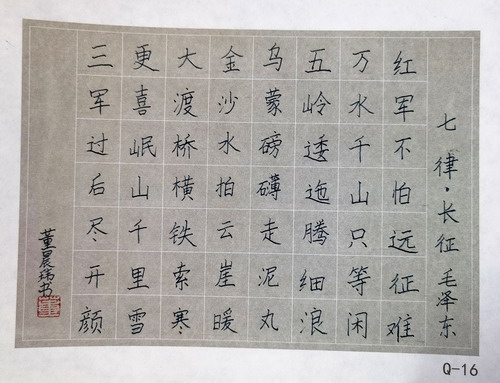 七律·长征 毛泽东
红军不怕远征难
万水千山只等闲
五岭逶迤腾细浪
乌蒙磅礴走泥丸
金沙水拍云崖暖
大渡桥横铁索寒
更喜岷山千里雪
三军过后尽开颜
董晨玮书
Q-16